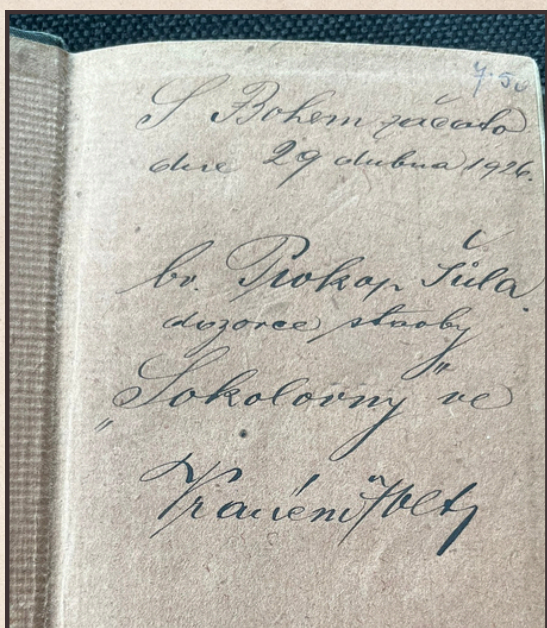 7.50
S Bohem začato
dne 29 dubna 1926.
br. Prokop Šůla.
dozorce stavby
„Sokolovny" ve